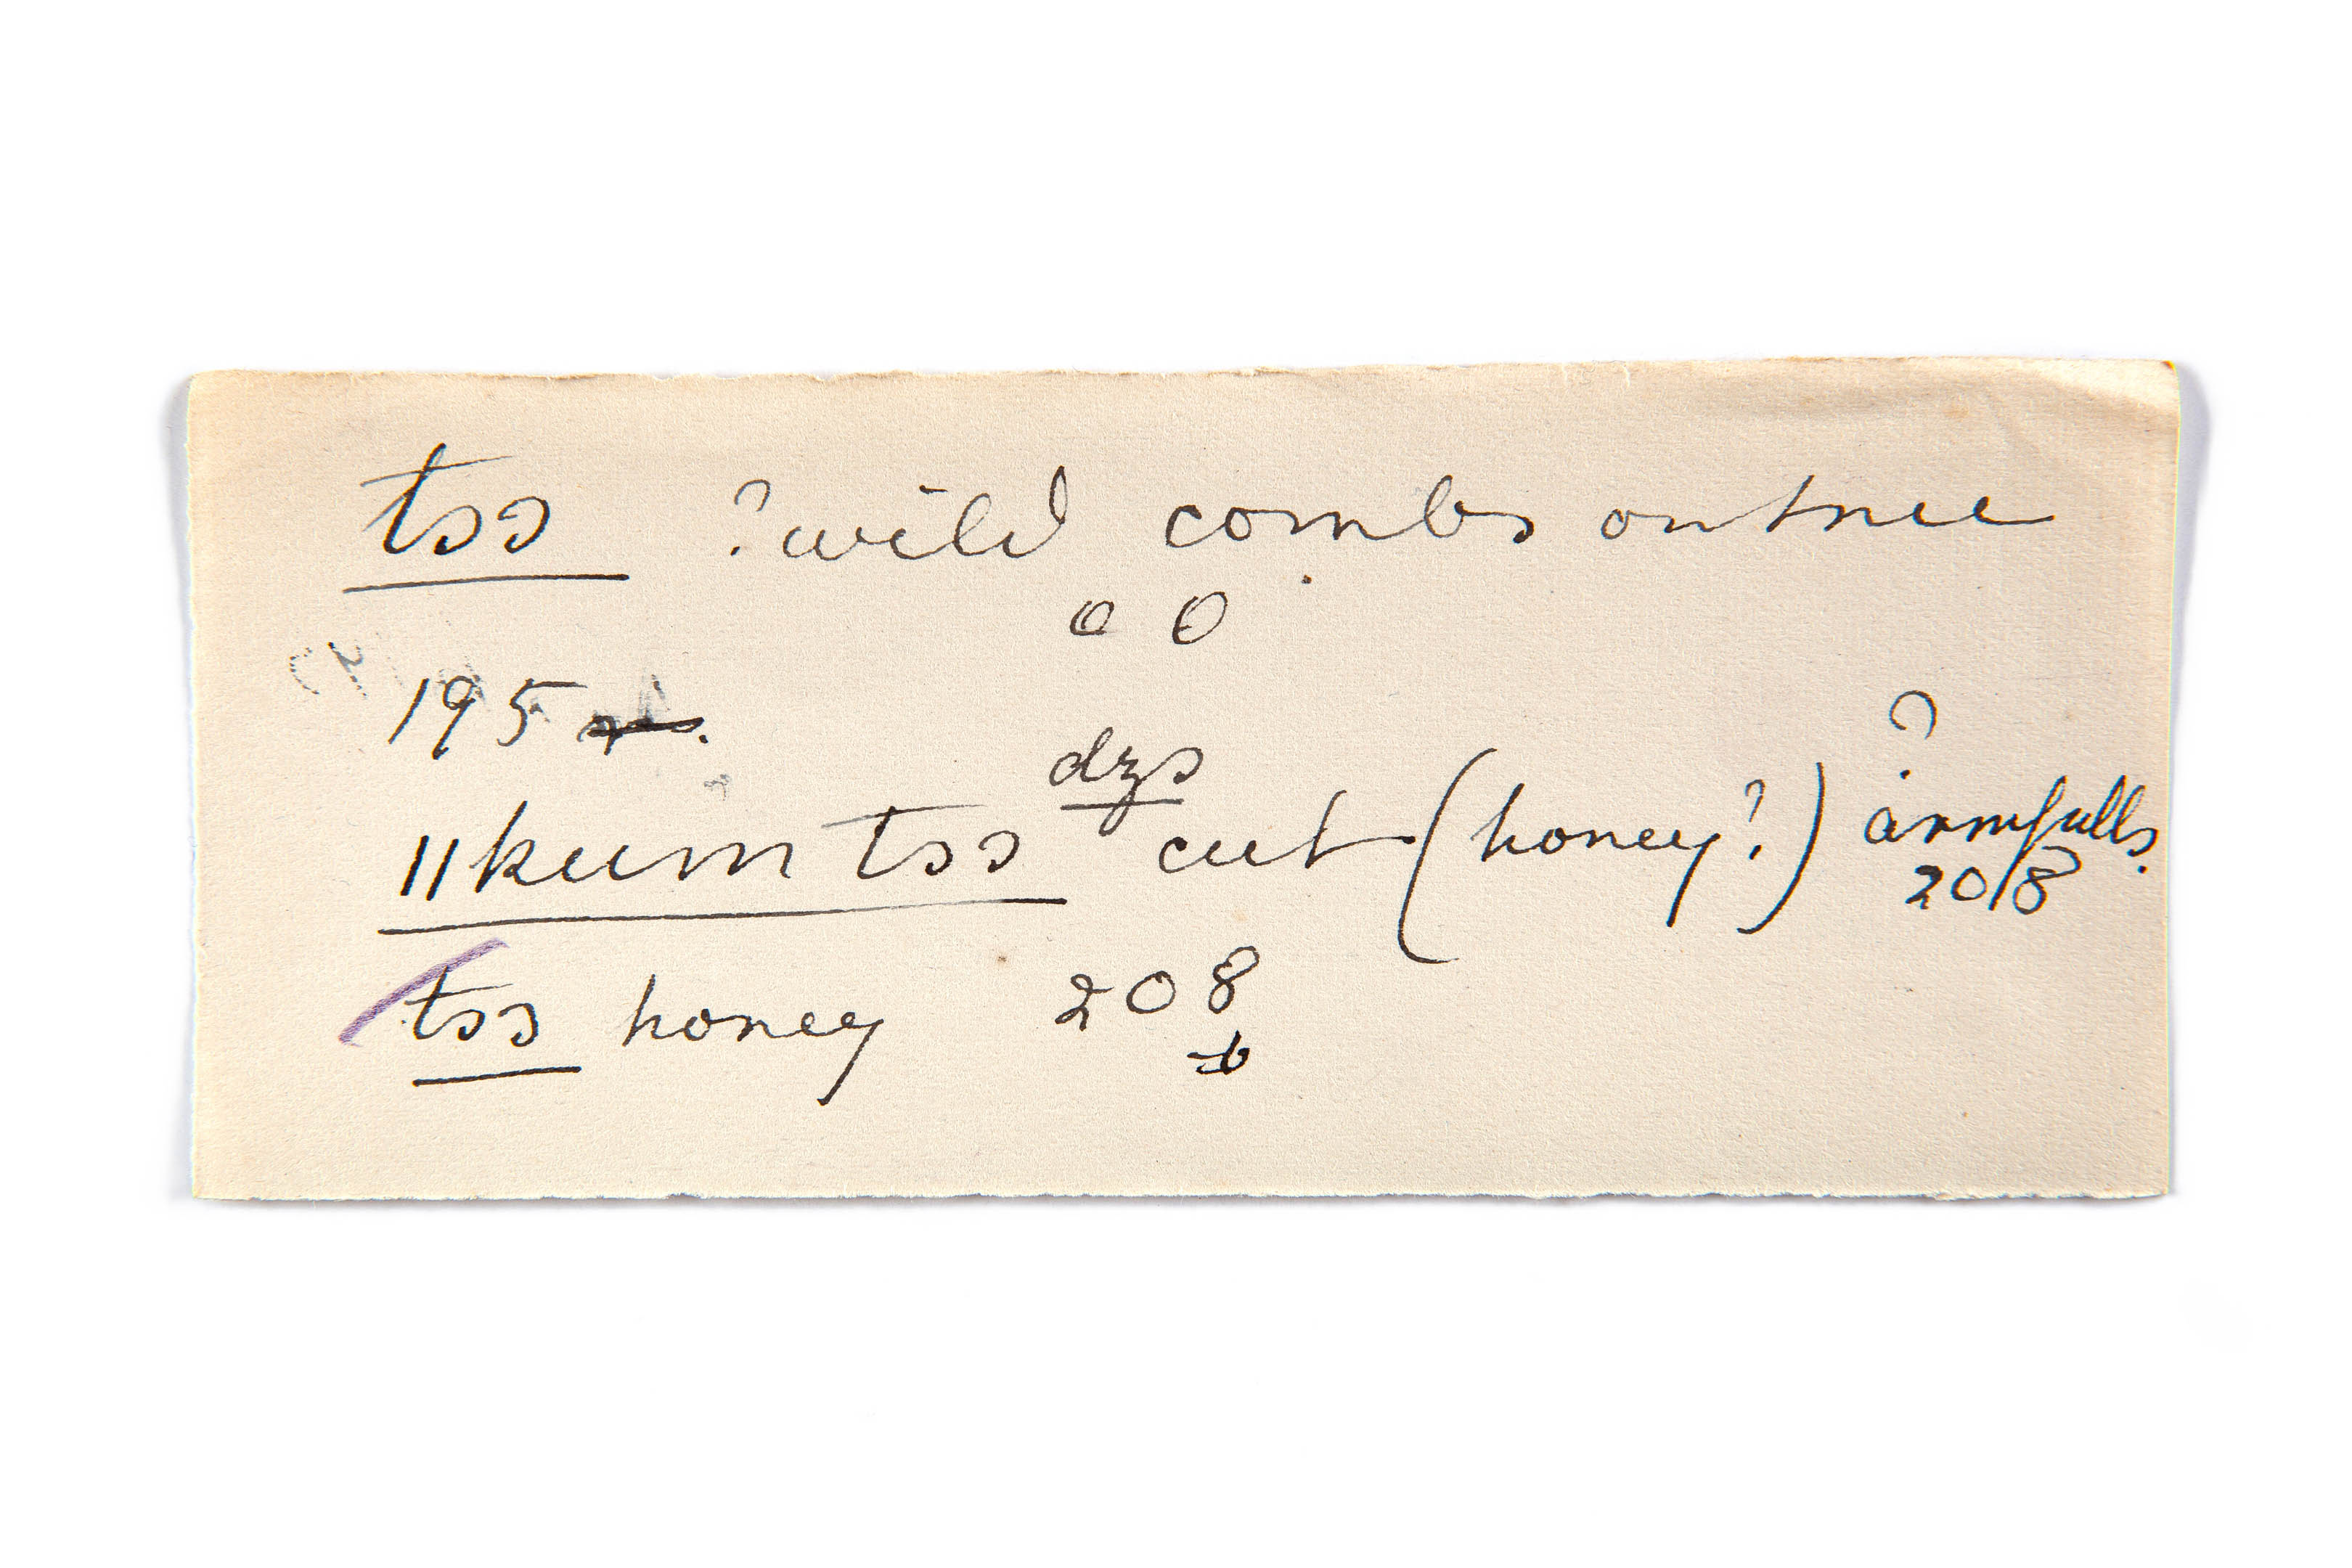 tsɔ ?wild combs on tree
o O
195
dzɔ ?
ǁkum tsɔ cut (honey?) armfulls.
208
tsɔ honey 208
b